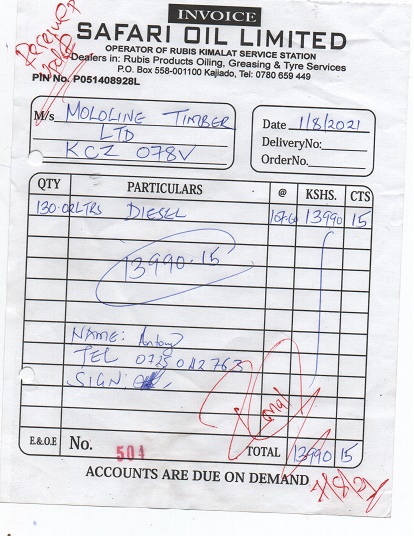 INVOICE
SAFARI OIL LIMITED
OPERATOR OF RUBIS KIMALAT SERVICE STATION
Dealers in: Rubis Products Oiling, Greasing & Tyre Services
P.O. Box 558-001100 Kajiado, Tel: 0780 659 449
PIN No. P051408928L
M/s MOLOLINE TIMBER
LTD
KCZ 078V
Date 1/8/2021
DeliveryNo:
OrderNo.
QTY PARTICULARS @ KSHS. CTS
DIESEL 13990 15
13990.15
NAME: Antony
TEL
SIGN
E.&O.E No. 501 TOTAL 13990 15
ACCOUNTS ARE DUE ON DEMAND